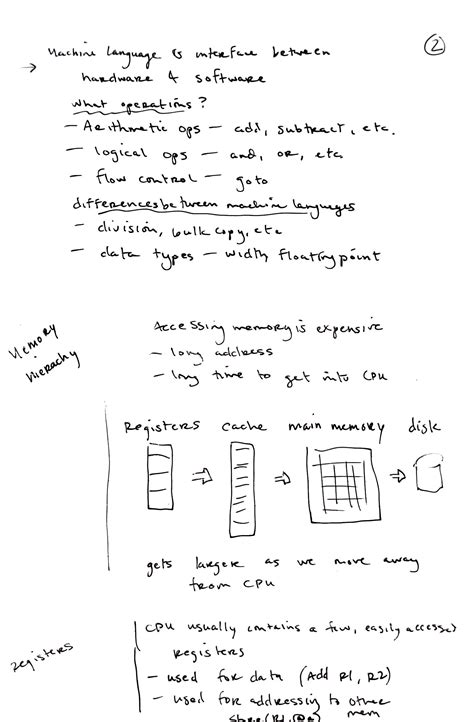 ②
→ Machine language is interface between
hardware & software
what operations?
- Arithmetic ops - add, subtract, etc.
- logical ops - and, or, etc
- flow control - goto
differences between machine languages
- division, bulk copy, etc
- data types - width floating point
Memory
hierachy
Accessing memory is expensive
- long address
- long time to get into CPU
Registers cache main memory disk
gets larger as we move away
from CPU
Registers
CPU usually contains a few, easily accessed
registers
- used for data (Add R1, R2)
- used for addressing to other
mem
store (R1,